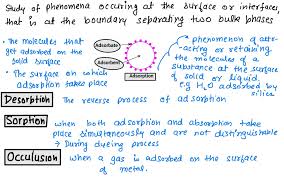 Study of phenomena occuring at the surface or interfaces,
that is at the boundary separating two bulk phases
• The molecules that
get adsorbed on the
solid surface
• The surface on which
adsorption take place
Adsorbate
Adsorbent
Adsorption
phenomenon of attr-
acting or retaining
the molecules of a
substance at the surface
of solid or liquid.
e.g H2O adsorbed by
silica
Desorbtion The reverse process of adsorption
Sorption when both adsorption and absorption take
place simultaneously and are not distinguishable
→ During dyeing process
Occulusion when a gas is adsorbed on the surface
of metal.